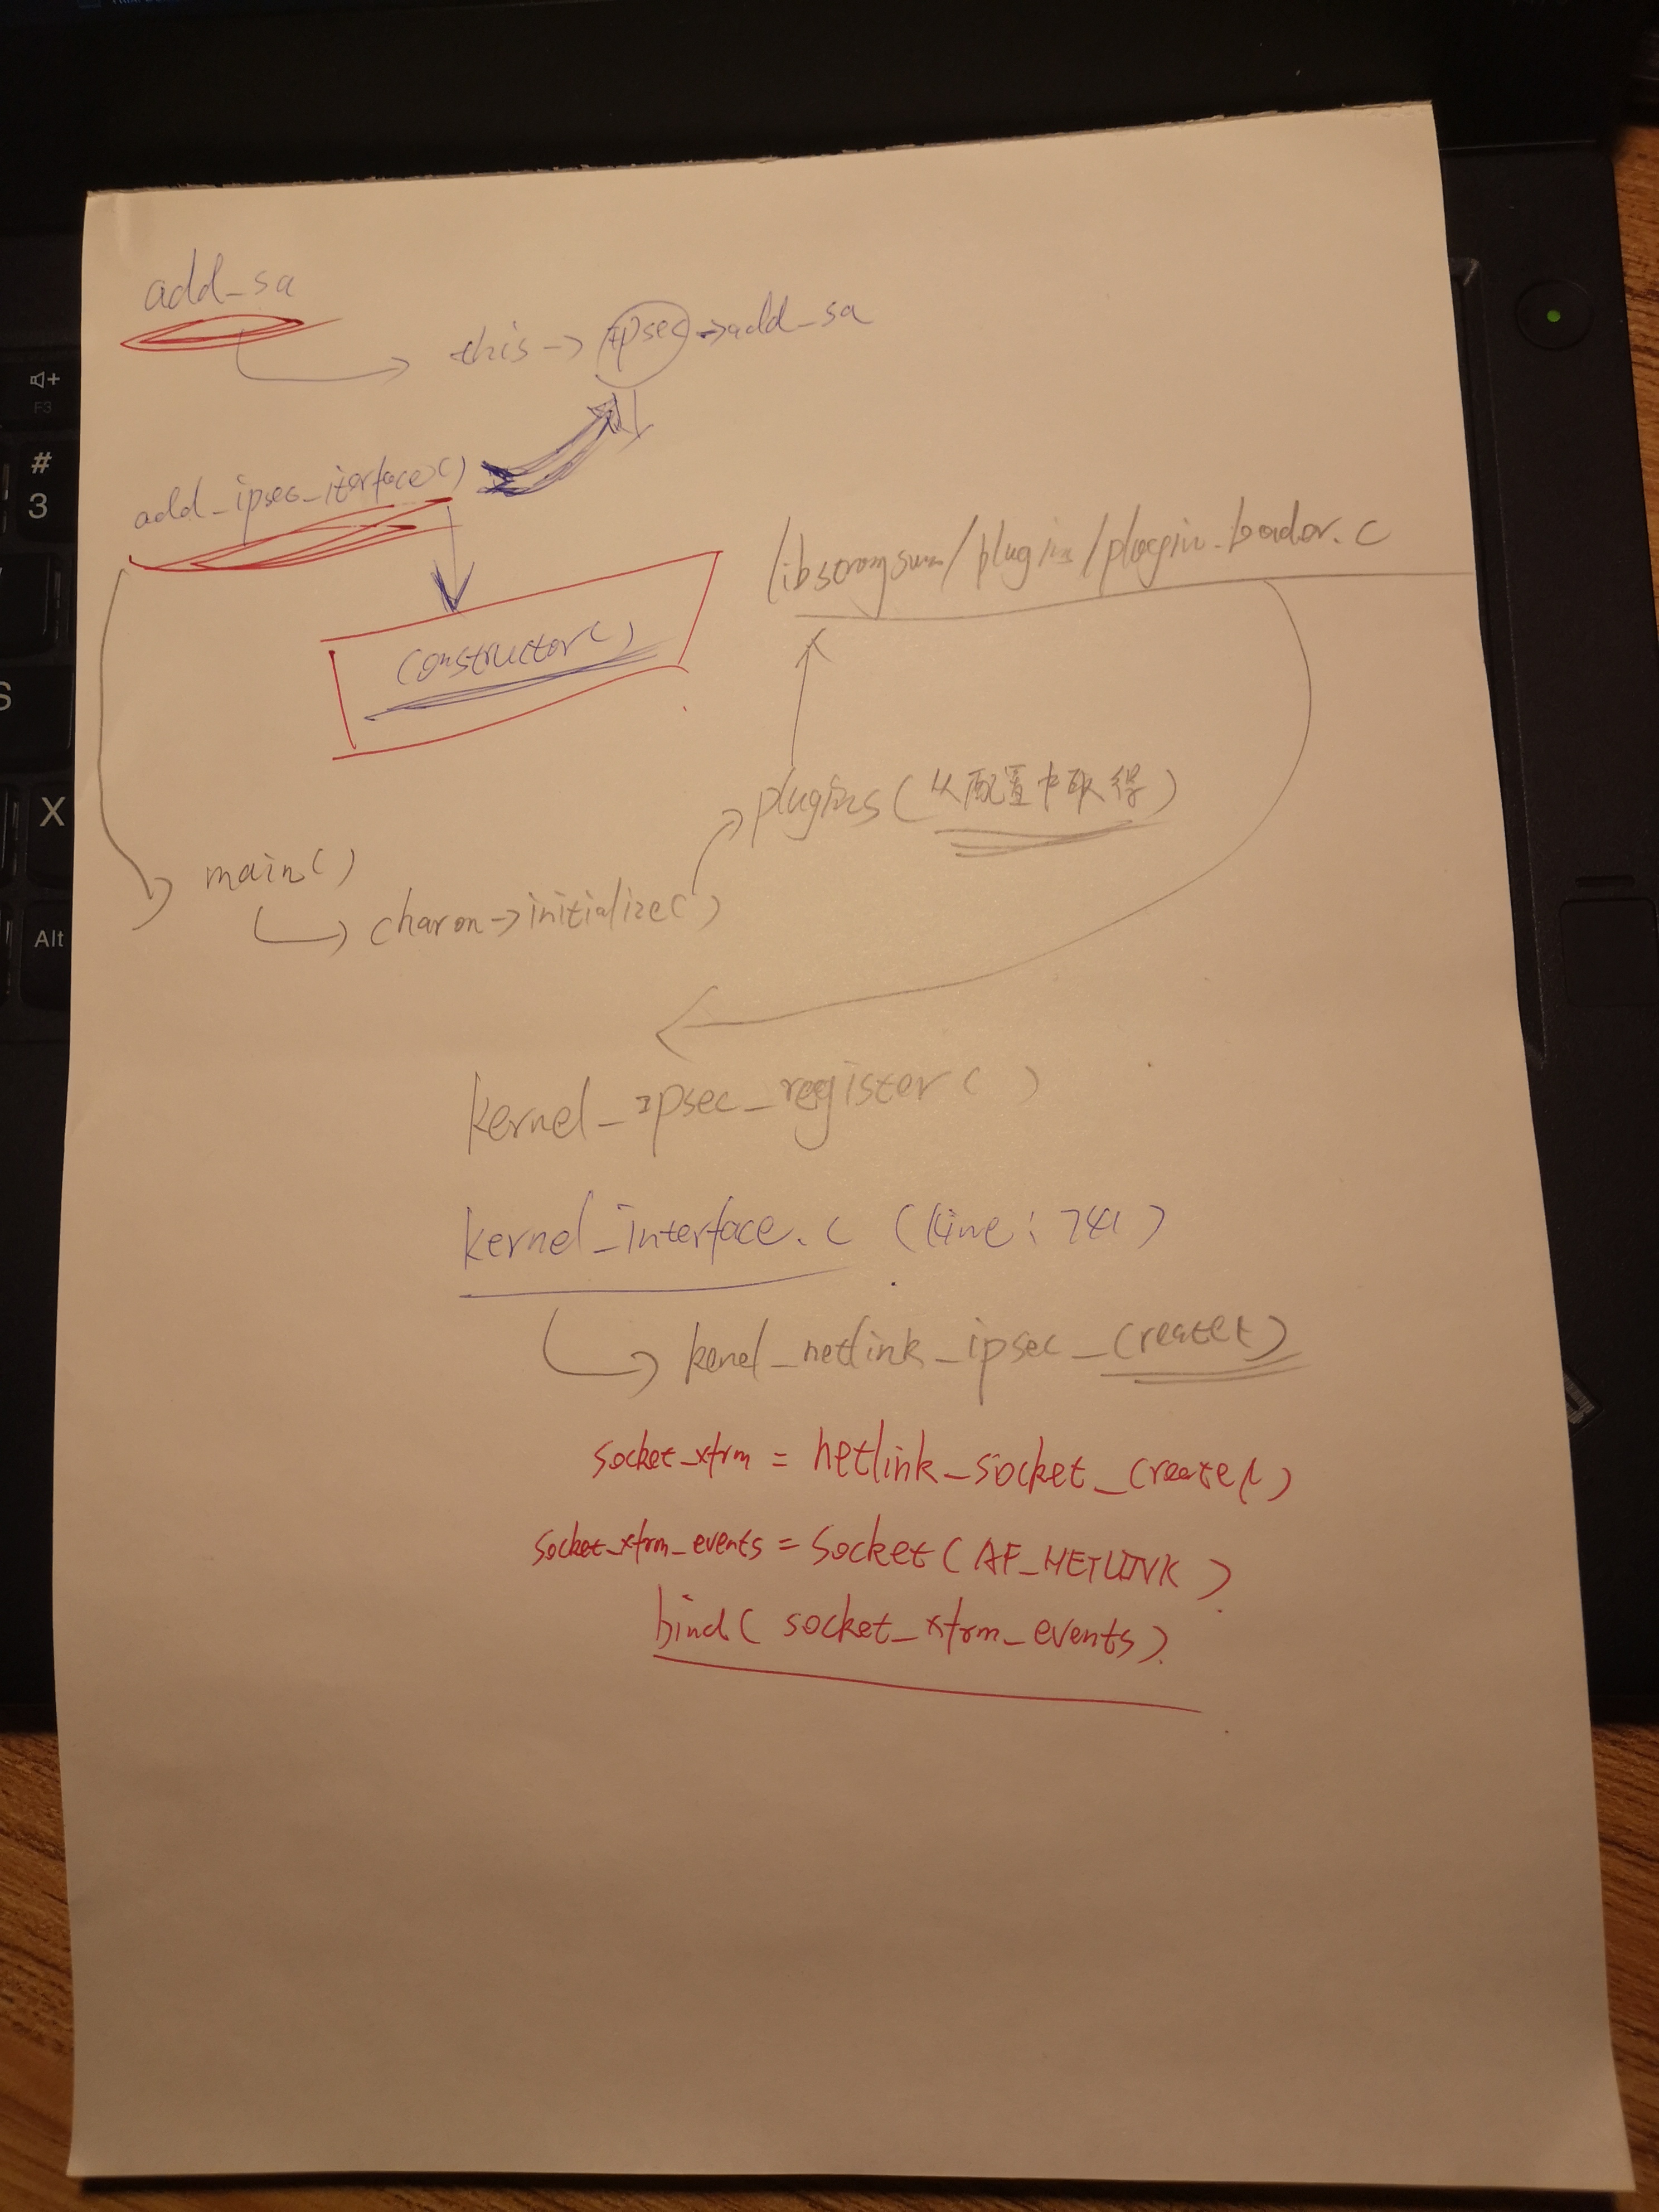 add_sa
this->ipsec->add_sa
add_ipsec_iterface()
libstrongswan/plugins/plugin_loader.c
constructor()
plugins(从配置中取得)
main()
charon->initialize()
kernel_ipsec_register()
kernel_interface.c (line:741)
kenel_netlink_ipsec_create()
socket_xfrm = netlink_socket_create()
socket_xfrm_events = socket(AF_NETLINK)
bind(socket_xfrm_events).
+
F3
#
3
S
X
Alt